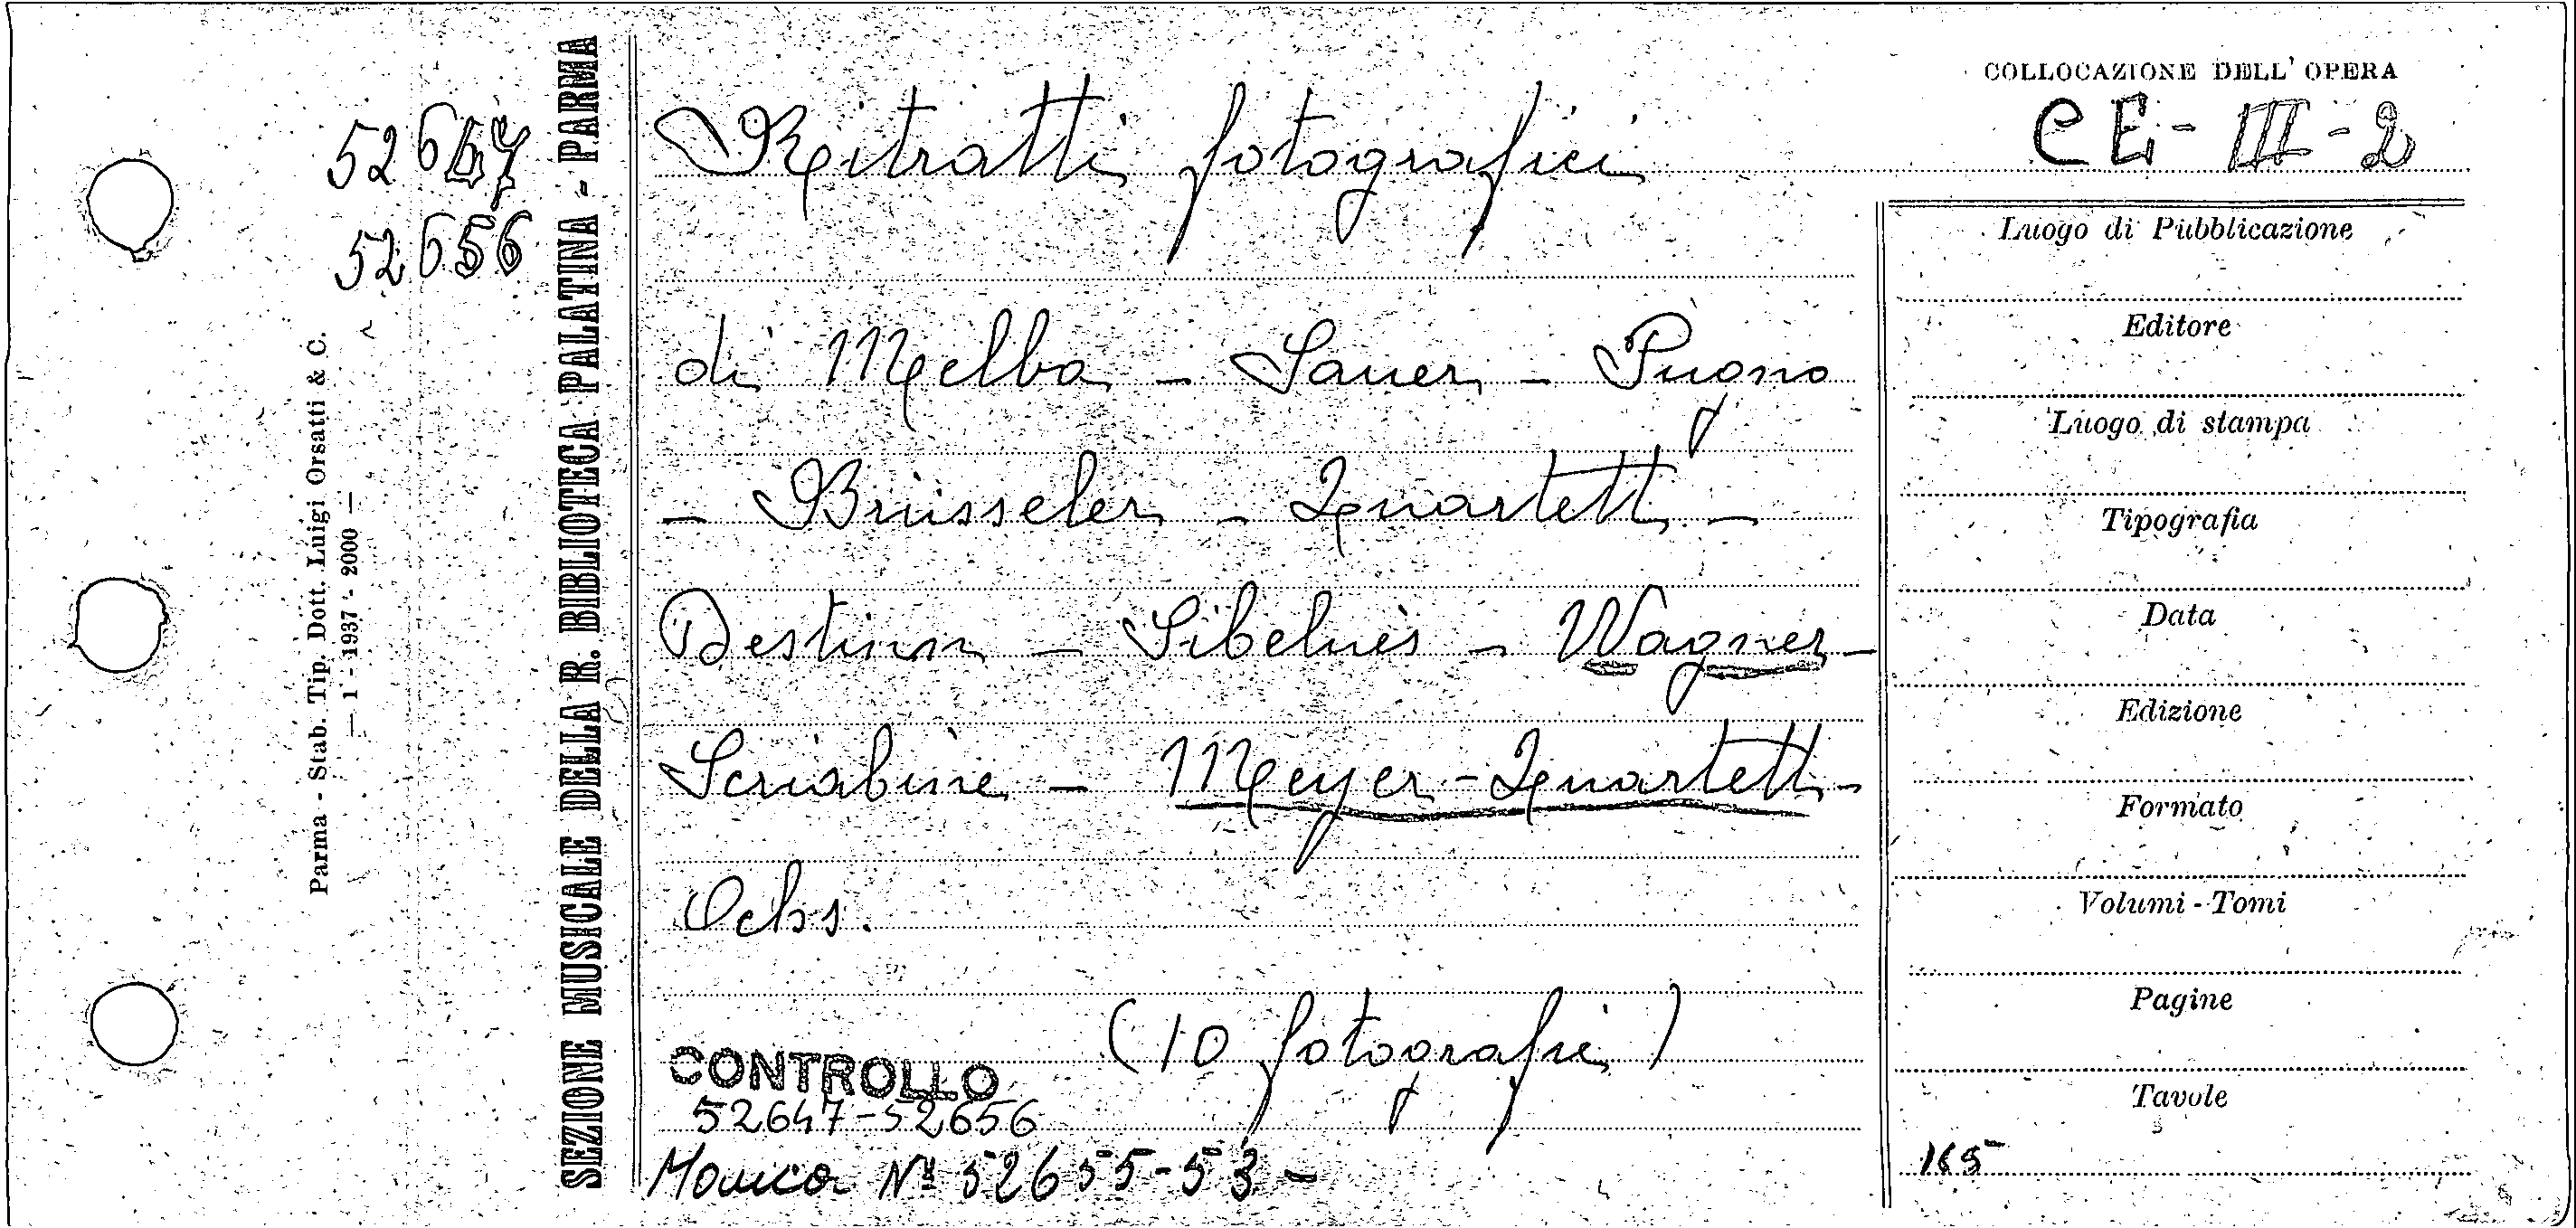 COLLOCAZIONE DELL' OPERA
CE - III - 2
52647
52656
SEZIONE MUSICALE DELLA R. BIBLIOTECA PALATINA - PARMA
Parma - Stab. Tip. Dott. Luigi Orsatti & C.
— 1 - 1937 - 2000 —
Ritratti fotografici
di Melba - Sauer - Pugno
- Brüsseler - Quartett -
Destinn - Sibelius - Wagner -
Scriabine - Meyer - Quartett -
Ochs.
(10 fotografie)
CONTROLLO
52647-52656
Manca Nº 52655-53 -
Luogo di Pubblicazione
Editore
Luogo di stampa
Tipografia
Data
Edizione
Formato
Volumi - Tomi
Pagine
Tavole
165